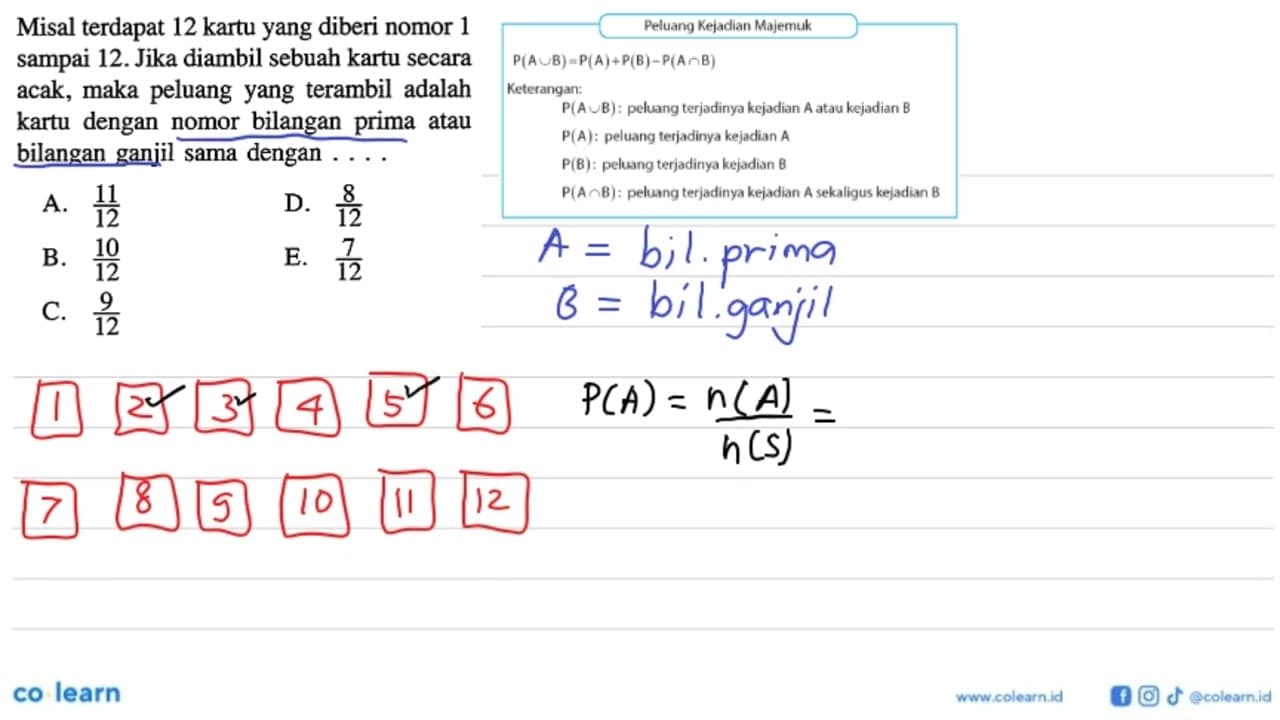 Misal terdapat 12 kartu yang diberi nomor 1
sampai 12. Jika diambil sebuah kartu secara
acak, maka peluang yang terambil adalah
kartu dengan nomor bilangan prima atau
bilangan ganjil sama dengan . . . .
A. 11/12
D. 8/12
B. 10/12
E. 7/12
C. 9/12
Peluang Kejadian Majemuk
P(A∪B)=P(A)+P(B)−P(A∩B)
Keterangan:
P(A∪B): peluang terjadinya kejadian A atau kejadian B
P(A): peluang terjadinya kejadian A
P(B): peluang terjadinya kejadian B
P(A∩B): peluang terjadinya kejadian A sekaligus kejadian B
A = bil. prima
B = bil. ganjil
1 2 3 4 5 6
7 8 9 10 11 12
P(A) = n(A)/n(S) =
co learn
www.colearn.id
@colearn.id